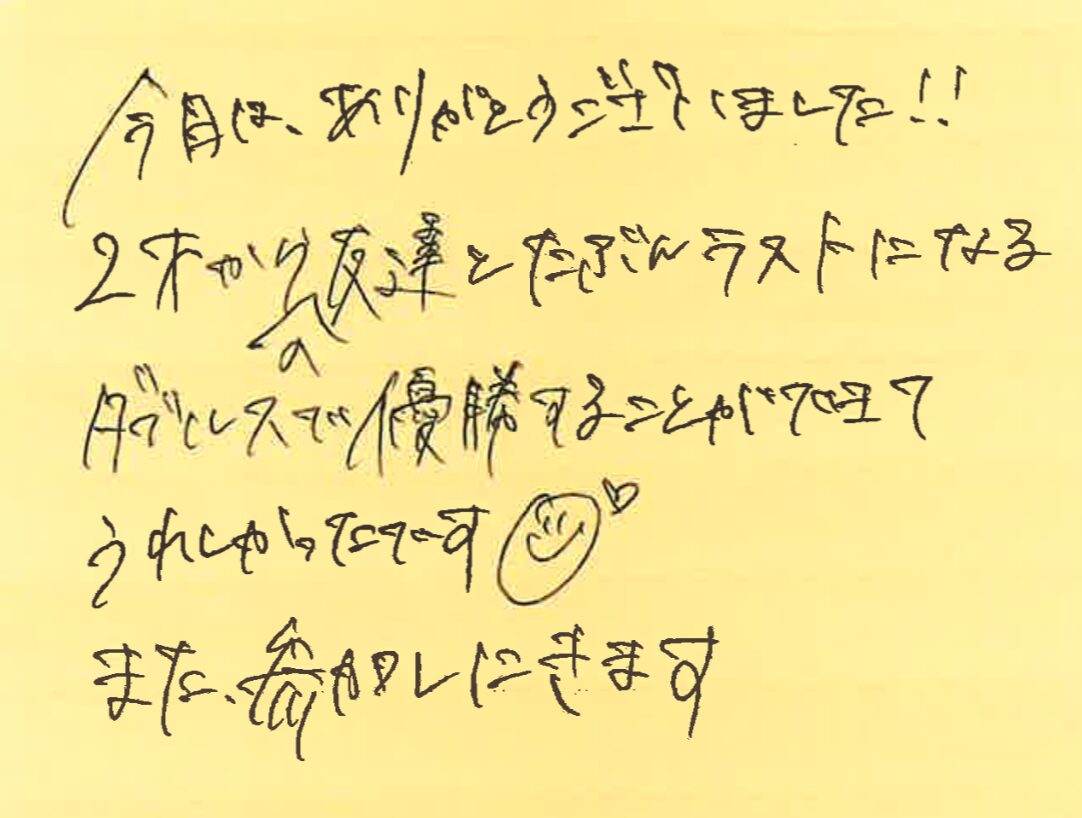 今日は、ありがとうございました!!
2才からの友達とたぶんラストになる
ダブルスで優勝することができて
うれしかったです
また、参加しにきます